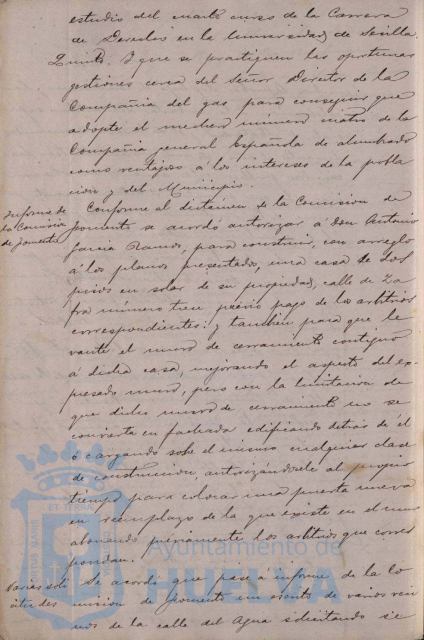 estudio del cuarto curso de la Carrera
de Derecho en la Universidad de Sevilla.
Quinto. Y que se practiquen las oportunas
gestiones cerca del Señor Director de la
Compañia del gas para conseguir que
adopte el mechero número cuatro de la
Compañia general Española de alumbrado
como ventajoso á los intereses de la pobla
cion y del Municipio.
Informe de
la Comision
de fomento
Conforme al dictamen de la Comision de
fomento se acordó autorizar á Don Antonio
Garcia Ramos, para construir, con arreglo
á los planos presentados, una casa de dos
pisos en solar de su propiedad, calle de Za
fra número trece previo pago de los arbitrios
correspondientes: y tambien para que le
vante el muro de cerramiento contiguo
á dicha casa, mejorando el aspecto del ex
presado muro, pero con la limitacion de
que dicho muro de cerramiento no se
convierta en fachada edificando detras de él
ó cargando sobre el mismo cualquier clase
de construccion autorizándosele al propio
tiempo para colocar una puerta nueva
en reemplazo de la que existe en el muro
abonando previamente los arbitrios que corres
pondan.
Varias soli
citudes
Se acordó que pase á informe de la Co
mision de fomento un escrito de varios veci
nos de la calle del Agua solicitando se
Ayuntamiento de
HUELVA